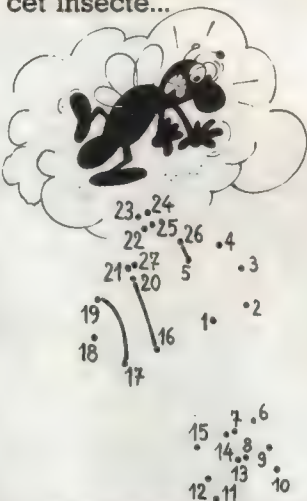 cet insecte...
23 24
22 25
26 4
21 27
20 5 3
19 2
1
18 16
17
7 6
15
14 8
9
13
12 11 10